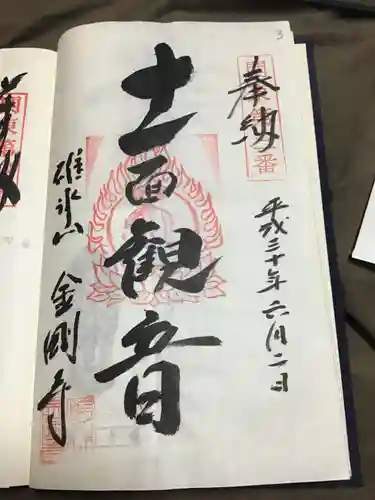 3
奉納
平成三十年六月二日
十一面観音
碓氷山 金剛寺